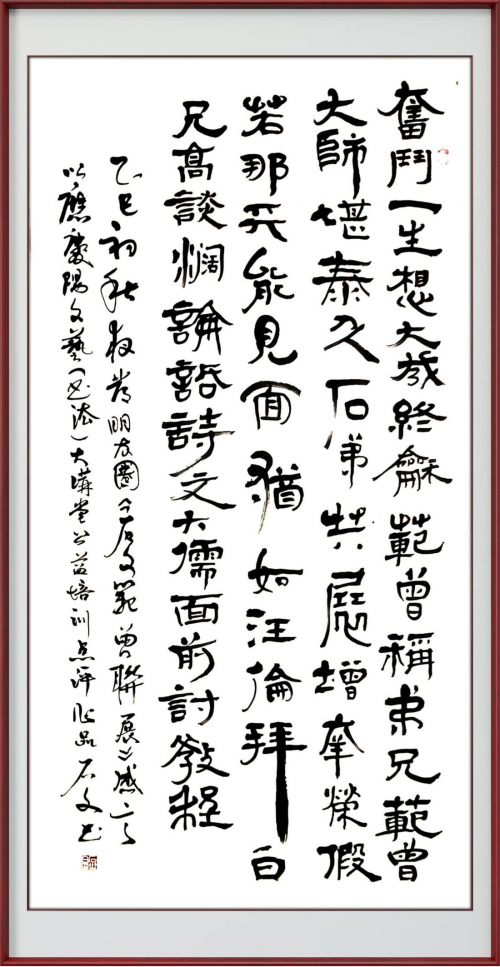 奮鬥一生想大終龢範曾稱弟兄範曾
大師堪泰石弟共展增幸榮假
若那天能見面猶如汪倫拜白
兄高談濶論詩文大儒面前討教程
乙巳初秋朋友圈石文範曾聯展感言
以應慶陽文藝（書法）大講堂公益培訓点评作品石文書